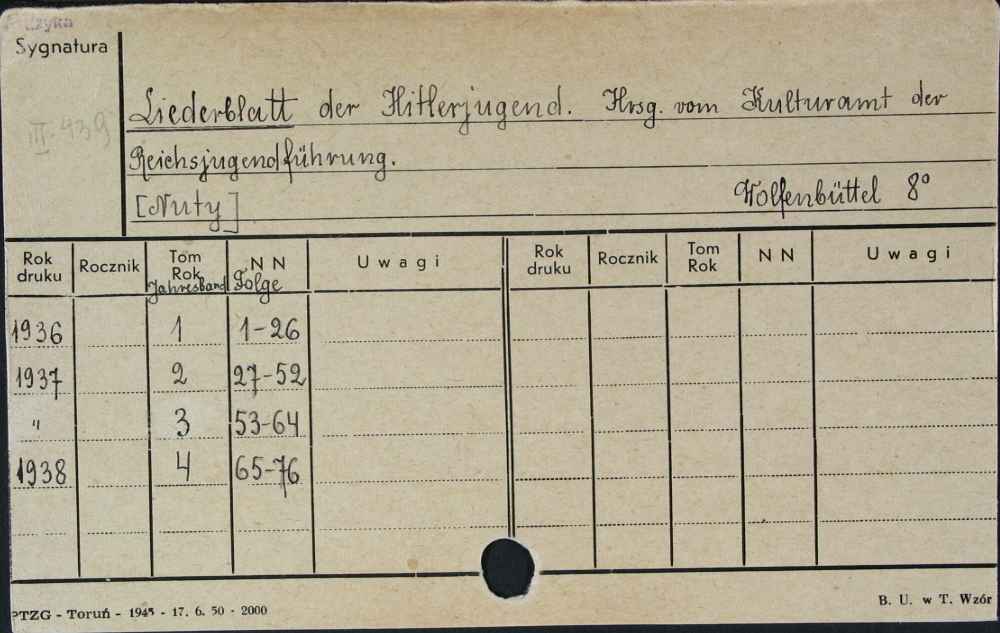 Sygnatura
III-939
Liederblatt der Hitlerjugend. Hrsg. vom Kulturamt der
Reichsjugendführung.
[Nuty] Wolfenbüttel 8°
Rok druku Rocznik Tom Rok Jahresband N N Folge Uwagi Rok druku Rocznik Tom Rok N N Uwagi
1936 1 1-26
1937 2 27-52
" 3 53-64
1938 4 65-76
PTZG - Toruń - 1945 - 17. 6. 50 - 2000
B. U. w T. Wzór